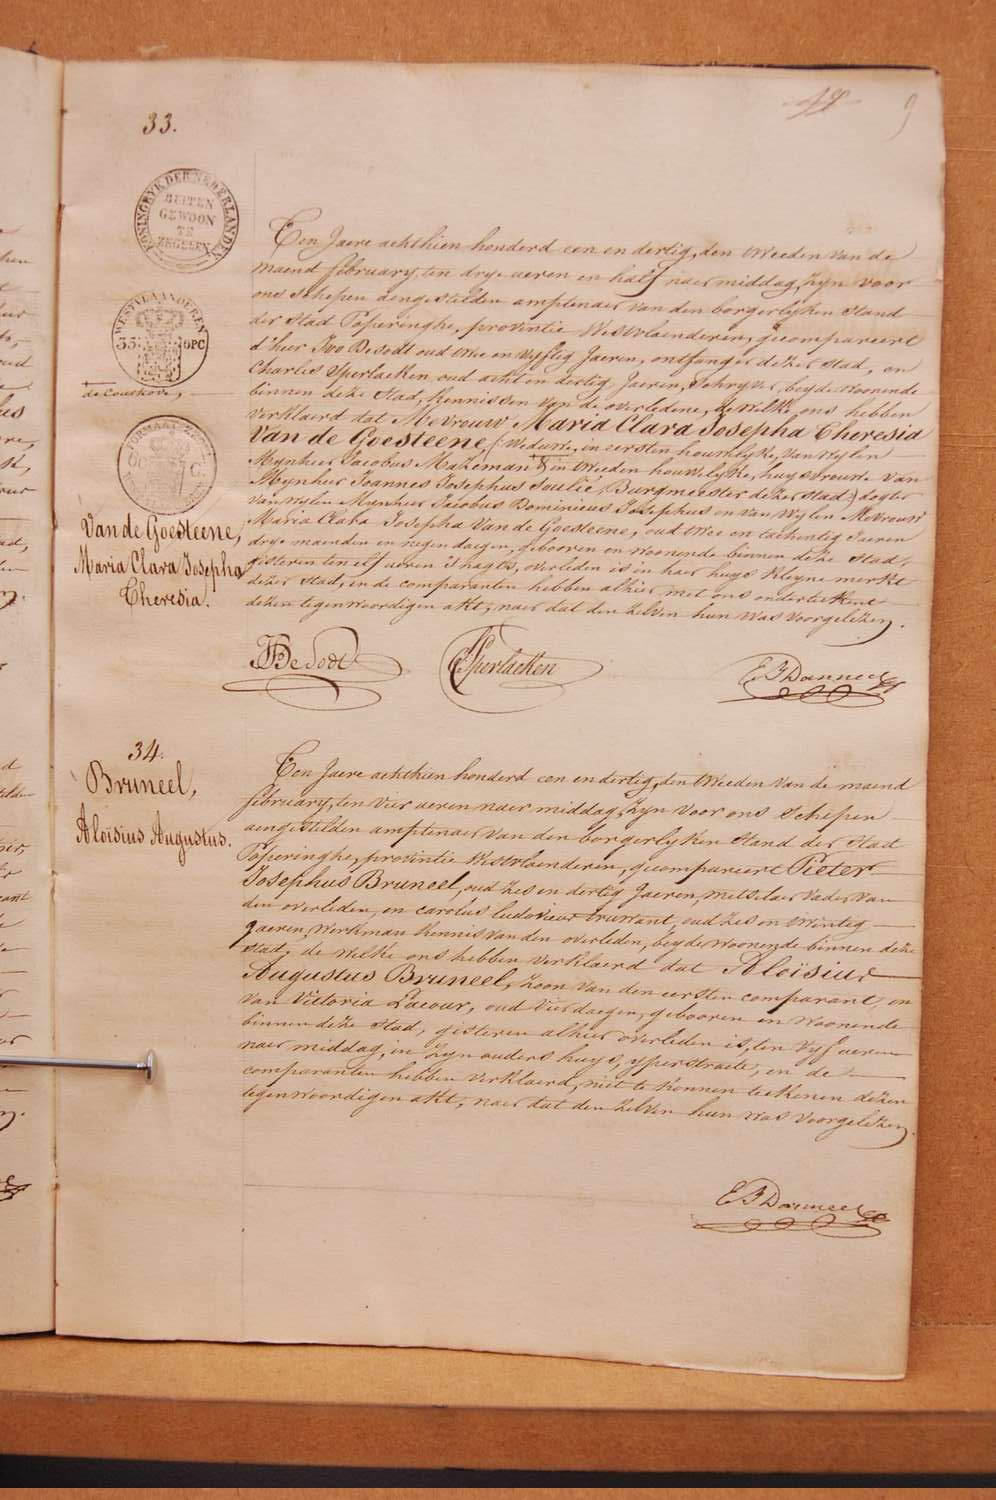 9
33.
KONINGRYK DER NEDERLANDEN
BUITEN
GEWOON
TE
ZEGELEN
WESTVLAANDEREN
35 OPC
de Couthove,
Van de Goesteene,
Maria Clara Josepha
Theresia.
Ten Jaere achthien honderd een en dertig, den tweeden van de
maend february, ten drye ueren en half naer middag, zyn voor
ons schepen aengestelden amptenaer van den borgerlyken stand
der stad Poperinghe, provintie Westvlaenderen, gecompareert
d'heer Ivo Desodt oud twee en vyftig Jaeren, ontfanger dezer stad, en
Charles Sperlaeken oud acht en dertig Jaeren, schryver, beyde woonende
binnen deze stad, kennissen van de overledene, de welke ons hebben
verklaerd dat Mevrouw Maria Clara Josepha Theresia
Van de Goesteene, (Weduwe, in eersten houwelyke, van wylen
Mynheer Jacobus Mazeman & in tweeden houwelyke, huysvrouwe van
Mynheer Joannes Josephus Soulié, Burgmeester dezer stad) dogter
van wylen Mynheer Jacobus Dominicus Josephus en van wylen Mevrouw
Maria Clara Josepha Van de Goesteene, oud twee en tachentig Jaeren
drye maenden en negen daegen, gebooren en woonende binnen deze stad,
gisteren ten elf ueren s'nagts, overleden is in haer huys kleyne merkt
dezer stad, en de comparanten hebben alhier met ons onderteekent
dezen tegenwoordigen akt, naer dat den zelven hun was voorgelezen.
Desodt
Sperlaeken
34.
Bruneel,
Aloïsius Augustus.
Ten Jaere achthien honderd een en dertig, den tweeden van de maend
february, ten vier ueren naer middag, zyn voor ons schepen
aengestelden amptenaer van den borgerlyken stand der stad
Poperinghe, provintie Westvlaenderen, gecompareert Pieter
Josephus Bruneel, oud zes en dertig Jaeren, metselaer vader van
den overleden, en carolus ludovicus truwant, oud zes en twintig
Jaeren, werkman kennis van den overleden, beyde woonende binnen deze
stad, de welke ons hebben verklaerd dat Aloïsius
Augustus Bruneel, zoon van den eersten comparant, en
van Victoria Lacour, oud vier daegen, gebooren en woonende
binnen deze stad, gisteren alhier overleden is, ten vyf ueren
naer middag, in zyn ouders huys, yperstraete, en de
comparanten hebben verklaerd, niet te konnen teekenen dezen
tegenwoordigen akt, naer dat den zelven hun was voorgelezen.